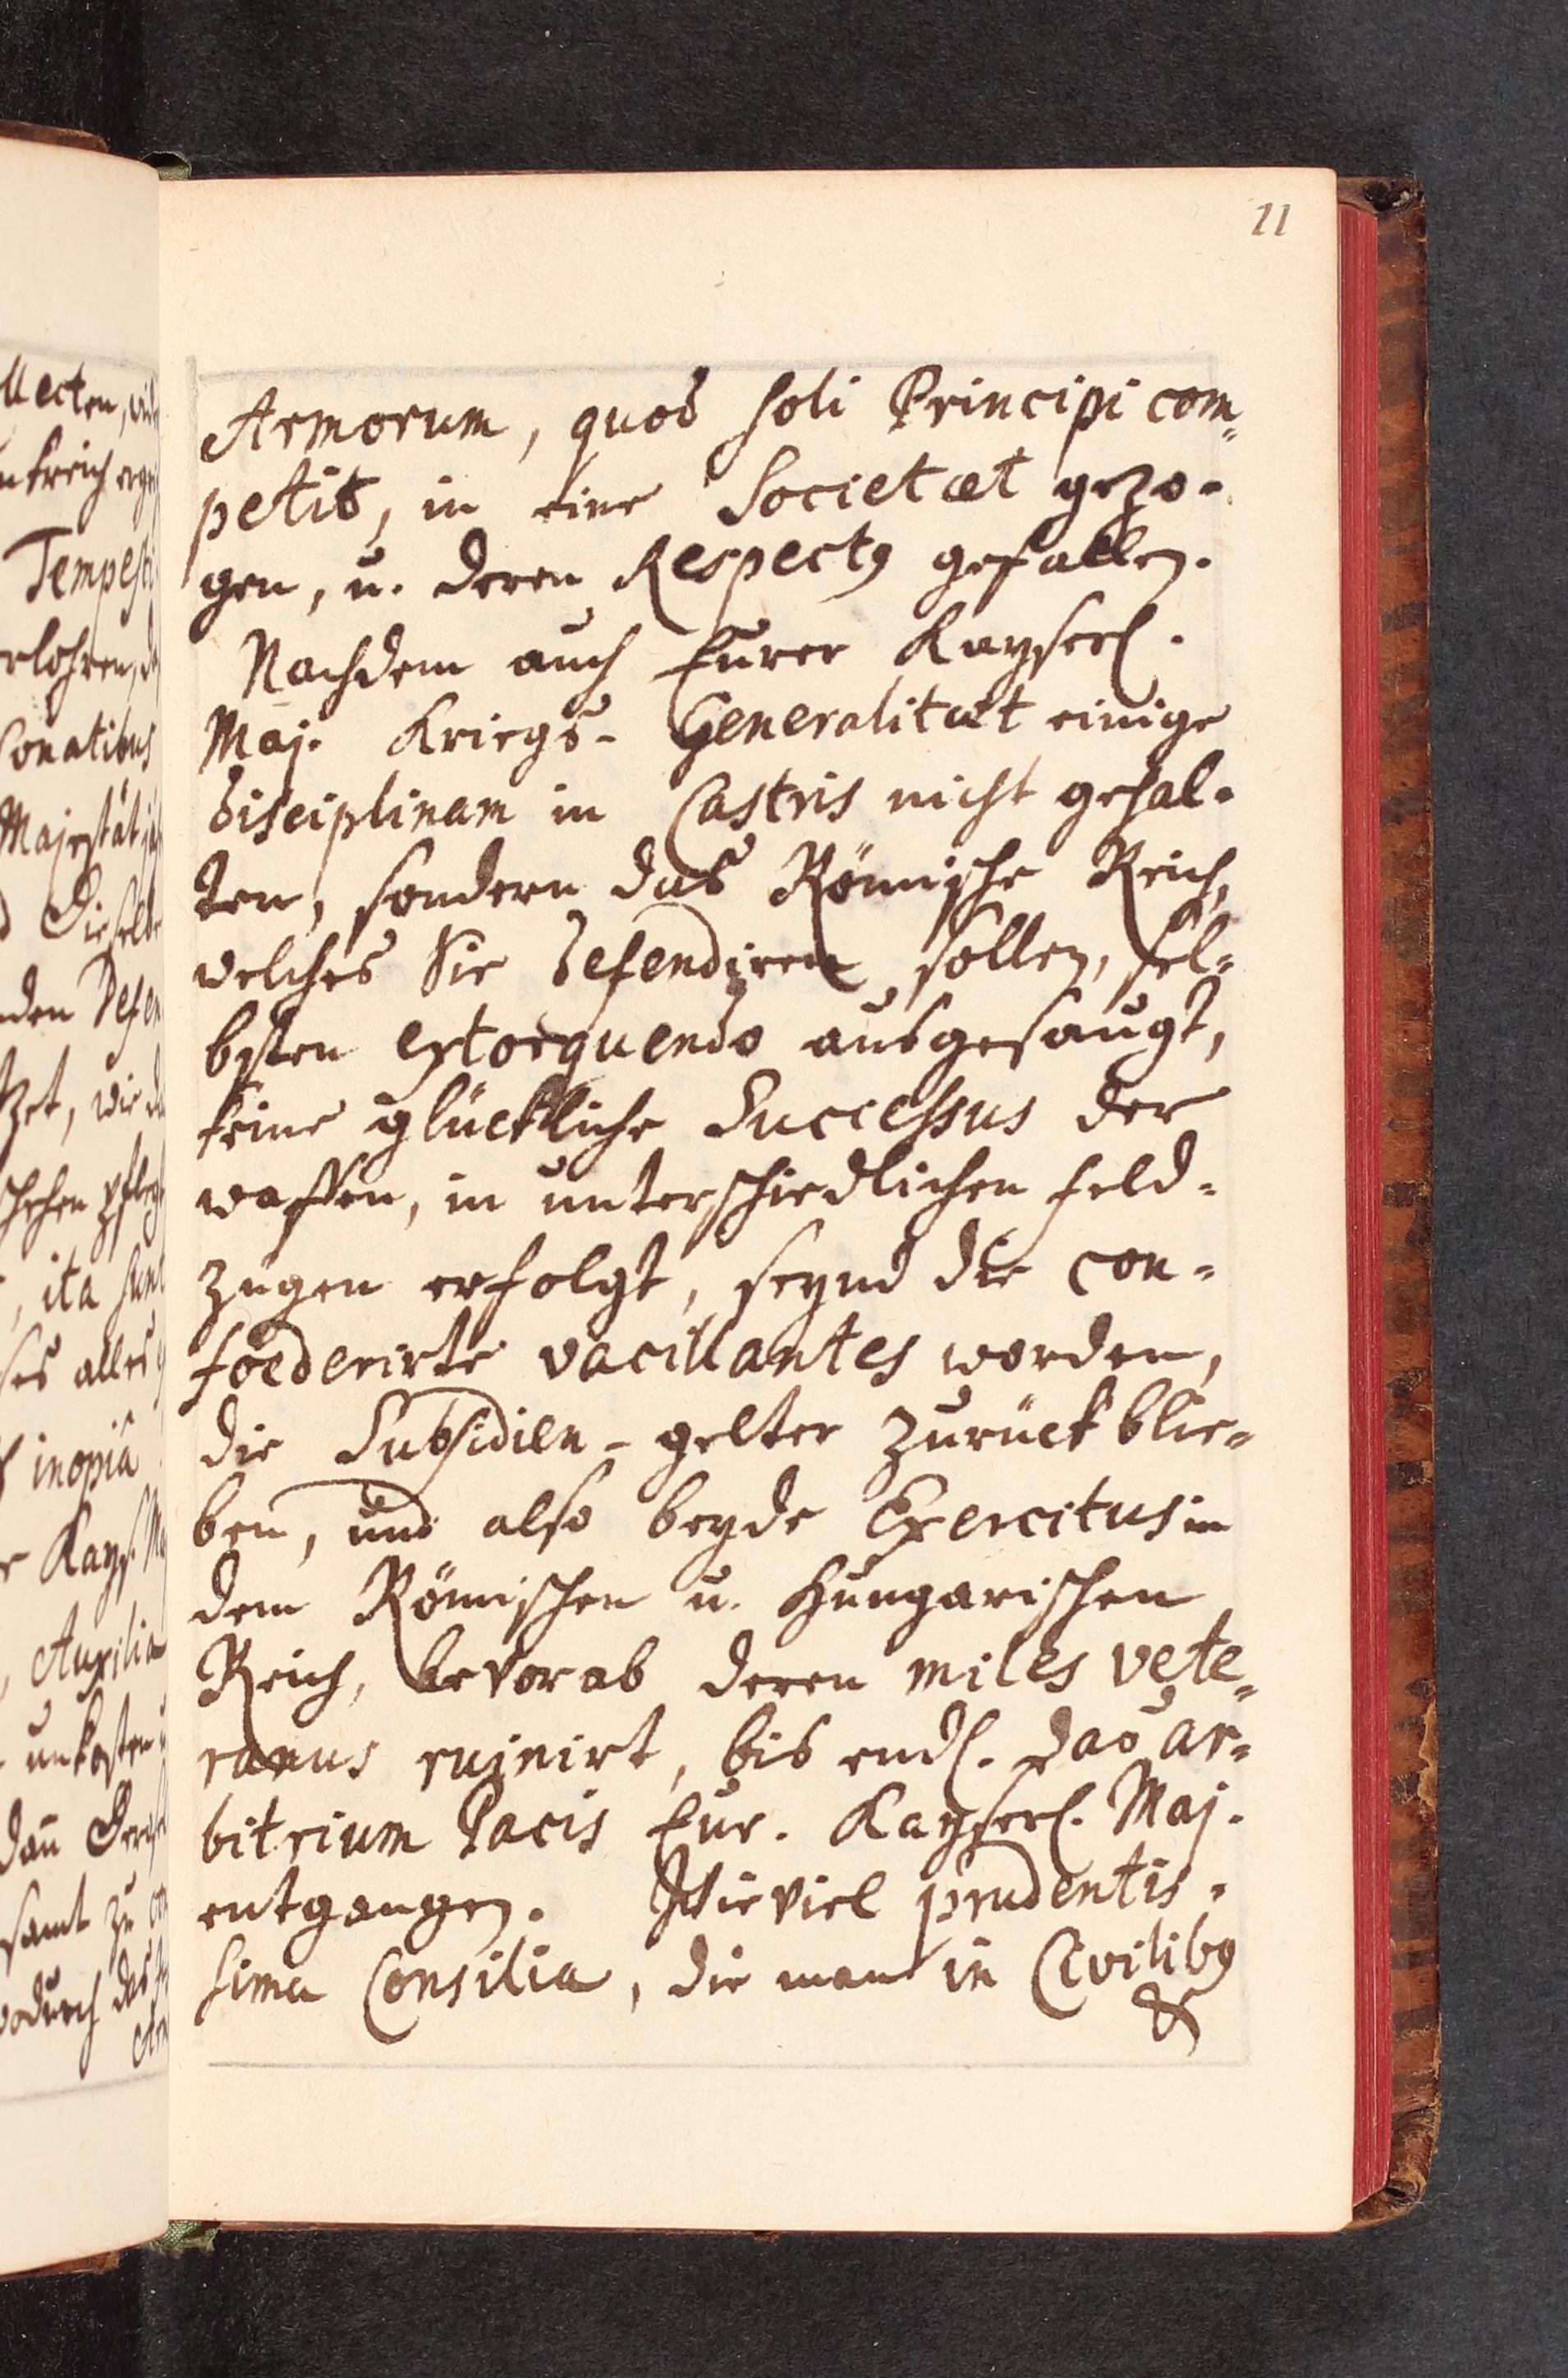 11
Armorum, quod soli Principi com„
petit, in eine Societæt gezo-
gen, u. deren Respectus gefallen.
Nachdem auch Eurer Kayserl.
Maj. Kriegs-Generalitæt einige
disciplinam in Castris nicht gehal-
ten, sondern das Römische Reich,
welches Sie defendiren sollen, sel=
bsten extorquendo ausgesaugt,
keine glückliche Successus der
waffen, in unterschiedlichen feld=
zügen erfolgt, seynd die con=
foederirte vacillantes worden,
die Subsidien-gelter zurückblie=
ben, und also beyde Exercitus in
dem Römischen u. Hungarischen
Reich, bevorab deren miles vete„
ranus ruinirt, bis endl. das ar=
bitrium Pacis Eur. Kayserl. Maj.
entgangen. Wieviel prudentis-
sima Consilia, die man in Civilibus
&
llecten,
Tempesti
rlohren,
Conatibus
Majestät
Dieselbe
den Defen
zet, wie
, ita sunt
ses alles
inopia
Kays.
, Auxilia
unkosten
dañ
samt zu
wodurch das